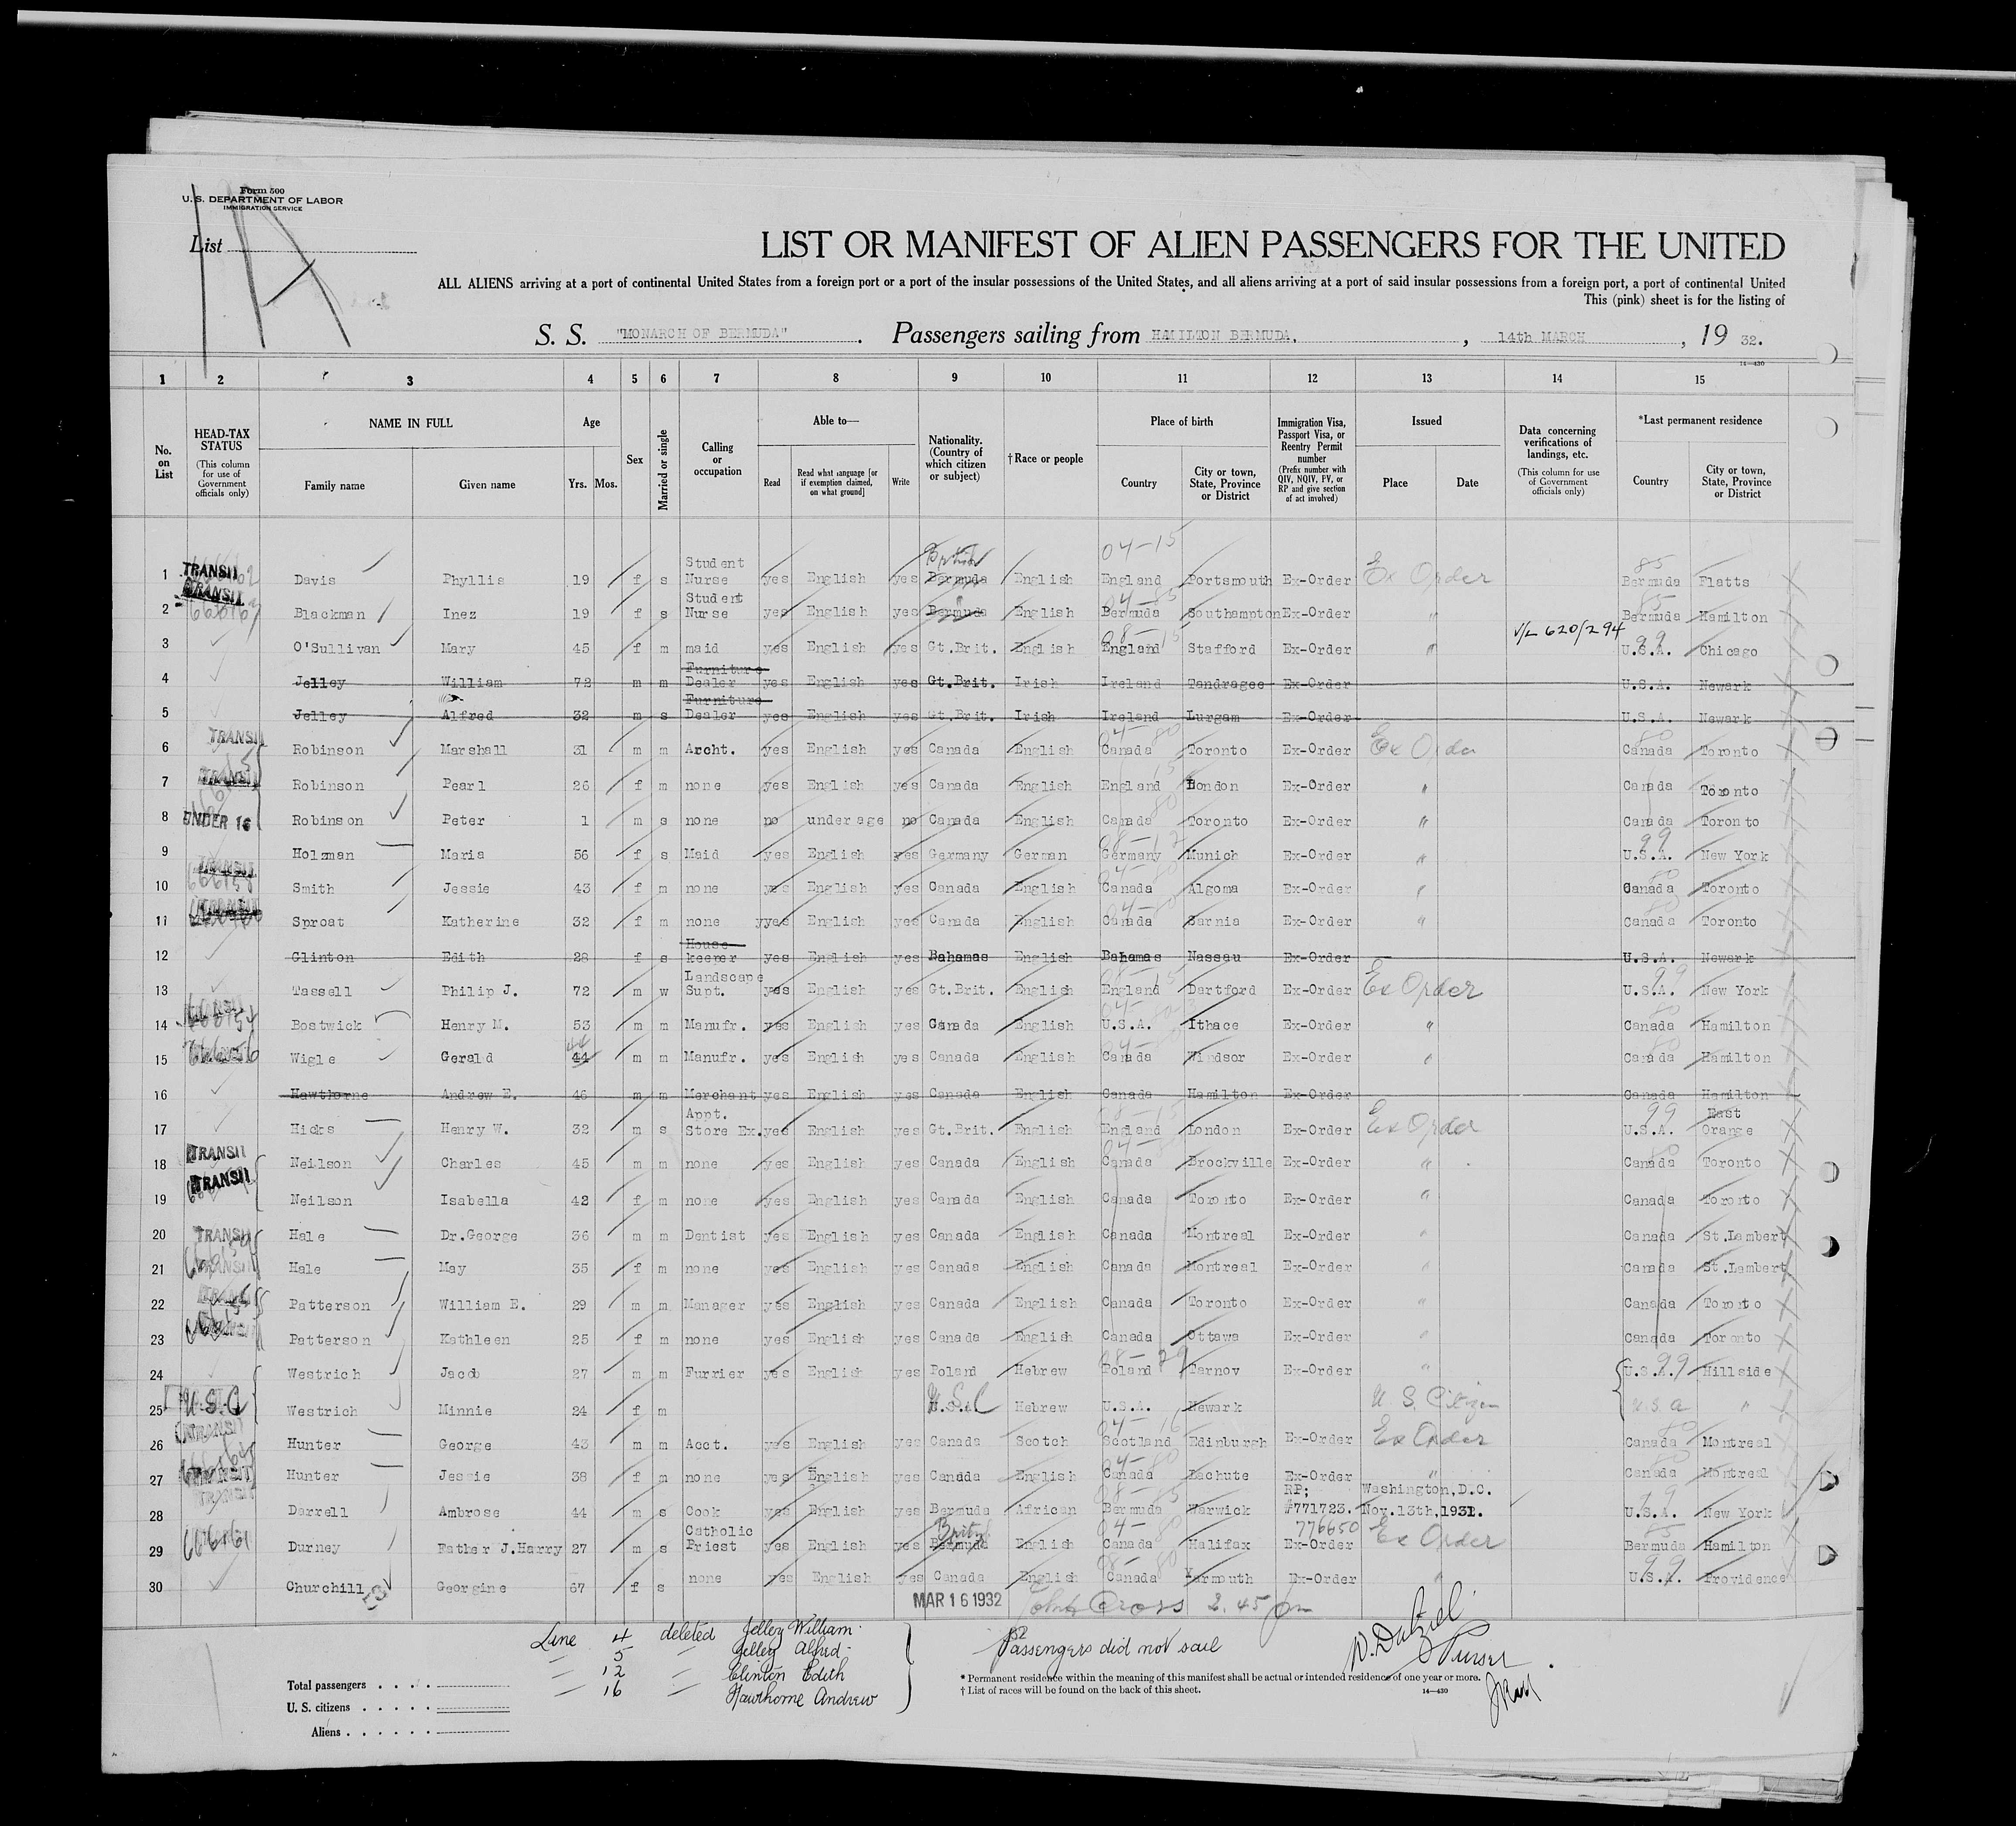 Form 500
U. S. DEPARTMENT OF LABOR
IMMIGRATION SERVICE
List 1A
LIST OR MANIFEST OF ALIEN PASSENGERS FOR THE UNITED
ALL ALIENS arriving at a port of continental United States from a foreign port or a port of the insular possessions of the United States, and all aliens arriving at a port of said insular possessions from a foreign port, a port of continental United
This (pink) sheet is for the listing of
S. S. "MONARCH OF BERMUDA". Passengers sailing from HAMILTON BERMUDA, 14th MARCH, 19 32.
14—430
1 2 3 4 5 6 7 8 9 10 11 12 13 14 15
No. on List
HEAD-TAX STATUS (This column for use of Government officials only)
NAME IN FULL Family name Given name
Age Yrs. Mos.
Sex
Married or single
Calling or occupation
Able to— Read Read what language [or if exemption claimed, on what ground] Write
Nationality. (Country of which citizen or subject)
†Race or people
Place of birth Country City or town, State, Province or District
Immigration Visa, Passport Visa, or Reentry Permit number (Prefix number with QIV, NQIV, PV, or RP and give section of act involved)
Issued Place Date
Data concerning verifications of landings, etc. (This column for use of Government officials only)
*Last permanent residence Country City or town, State, Province or District
1 TRANSIT Davis Phyllis 19 f s Student Nurse yes English yes Bermuda British English England 04-15 Portsmouth Ex-Order Ex Order Bermuda 85 Flatts
2 TRANSIT Blackman Inez 19 f s Student Nurse yes English yes Bermuda English Bermuda 04-85 Southampton Ex-Order " Bermuda 85 Hamilton
3 O'Sullivan Mary 45 f m maid yes English yes Gt.Brit. English England 08-15 Stafford Ex-Order " V/L 620/294 U.S.A. 99 Chicago
4 Jelley William 72 m m Furniture Dealer yes English yes Gt.Brit. Irish Ireland Tandragee Ex-Order U.S.A. Newark
5 Jelley Alfred 32 m s Furniture Dealer yes English yes Gt.Brit. Irish Ireland Lurgam Ex-Order U.S.A. Newark
6 TRANSIT Robinson Marshall 31 m m Archt. yes English yes Canada English Canada 04-80 Toronto Ex-Order Ex Order Canada 80 Toronto
7 TRANSIT Robinson Pearl 26 f m none yes English yes Canada English England 15 London Ex-Order " Canada Toronto
8 UNDER 16 Robinson Peter 1 m s none no under age no Canada English Canada 80 Toronto Ex-Order " Canada Toronto
9 Holzman Maria 56 f s Maid yes English yes Germany German Germany 08-12 Munich Ex-Order " U.S.A. 99 New York
10 TRANSIT 666158 Smith Jessie 43 f m none yes English yes Canada English Canada 04- Algoma Ex-Order " Canada 80 Toronto
11 Sproat Katherine 32 f m none yyes English yes Canada English Canada 04- Sarnia Ex-Order " Canada 80 Toronto
12 Clinton Edith 28 f s House keeper yes English yes Bahamas English Bahamas Nassau Ex-Order U.S.A. Newark
13 Tassell Philip J. 72 m w Landscape Supt. yes English yes Gt.Brit. English England 08-15 Dartford Ex-Order Ex Order U.S.A. 99 New York
14 Bostwick Henry M. 53 m m Manufr. yes English yes Canada English U.S.A. 04- Ithace Ex-Order " Canada 80 Hamilton
15 Wigle Gerald 44 44 m m Manufr. yes English yes Canada English Canada 04- Windsor Ex-Order " Canada 80 Hamilton
16 Hawthorne Andrew E. 46 m m Merchant yes English yes Canada English Canada Hamilton Ex-Order Canada Hamilton
17 Hicks Henry W. 32 m s Appt. Store Ex. yes English yes Gt.Brit. English England 08-15 London Ex-Order Ex Order U.S.A. 99 East Orange
18 TRANSIT Neilson Charles 45 m m none yes English yes Canada English Canada 04- Brockville Ex-Order " Canada 80 Toronto
19 TRANSIT Neilson Isabella 42 f m none yes English yes Canada English Canada Toronto Ex-Order " Canada Toronto
20 TRANSIT Hale Dr.George 36 m m Dentist yes English yes Canada English Canada Montreal Ex-Order " Canada St.Lambert
21 TRANSIT Hale May 35 f m none yes English yes Canada English Canada Montreal Ex-Order " Canada St.Lambert
22 TRANSIT Patterson William E. 29 m m Manager yes English yes Canada English Canada Toronto Ex-Order " Canada Toronto
23 Patterson Kathleen 25 f m none yes English yes Canada English Canada Ottawa Ex-Order " Canada Toronto
24 Westrich Jacob 27 m m Furrier yes English yes Poland Hebrew Poland 08-29 Tarnov Ex-Order " U.S. 99 Hillside
25 U.S.C Westrich Minnie 24 f m U.S.C Hebrew U.S.A. Newark U.S. Citizen U.S.A "
26 TRANSIT Hunter George 43 m m Acct. yes English yes Canada Scotch Scotland 04-16 Edinburgh Ex-Order Ex Order Canada 80 Montreal
27 TRANSIT Hunter Jessie 38 f m none yes English yes Canada English Canada 04-80 Lachute Ex-Order " Canada 80 Montreal
28 TRANSIT Darrell Ambrose 44 m s Cook yes English yes Bermuda African Bermuda 08-85 Warwick RP; #771723. 776650 Washington,D.C. Nov.13th,1931. U.S.A. 99 New York
29 666161 Durney Father J.Harry 27 m s Catholic Priest yes English yes Bermuda English Canada 04-80 Halifax Ex-Order Ex Order Bermuda 85 Hamilton
30 Churchill Georgine 67 f s none yes English yes Canada English Canada 08-80 Yarmouth Ex-Order " U.S.A. 99 Providence
MAR 16 1932 John Cross 2.45 pm
Line 4 deleted Jelley William
— 5 — Jelley Alfred
— 12 — Clinton Edith
— 16 — Hawthorne Andrew
Passengers did not sail
Purser
Total passengers
U. S. citizens
Aliens
* Permanent residence within the meaning of this manifest shall be actual or intended residence of one year or more.
† List of races will be found on the back of this sheet.
14—430